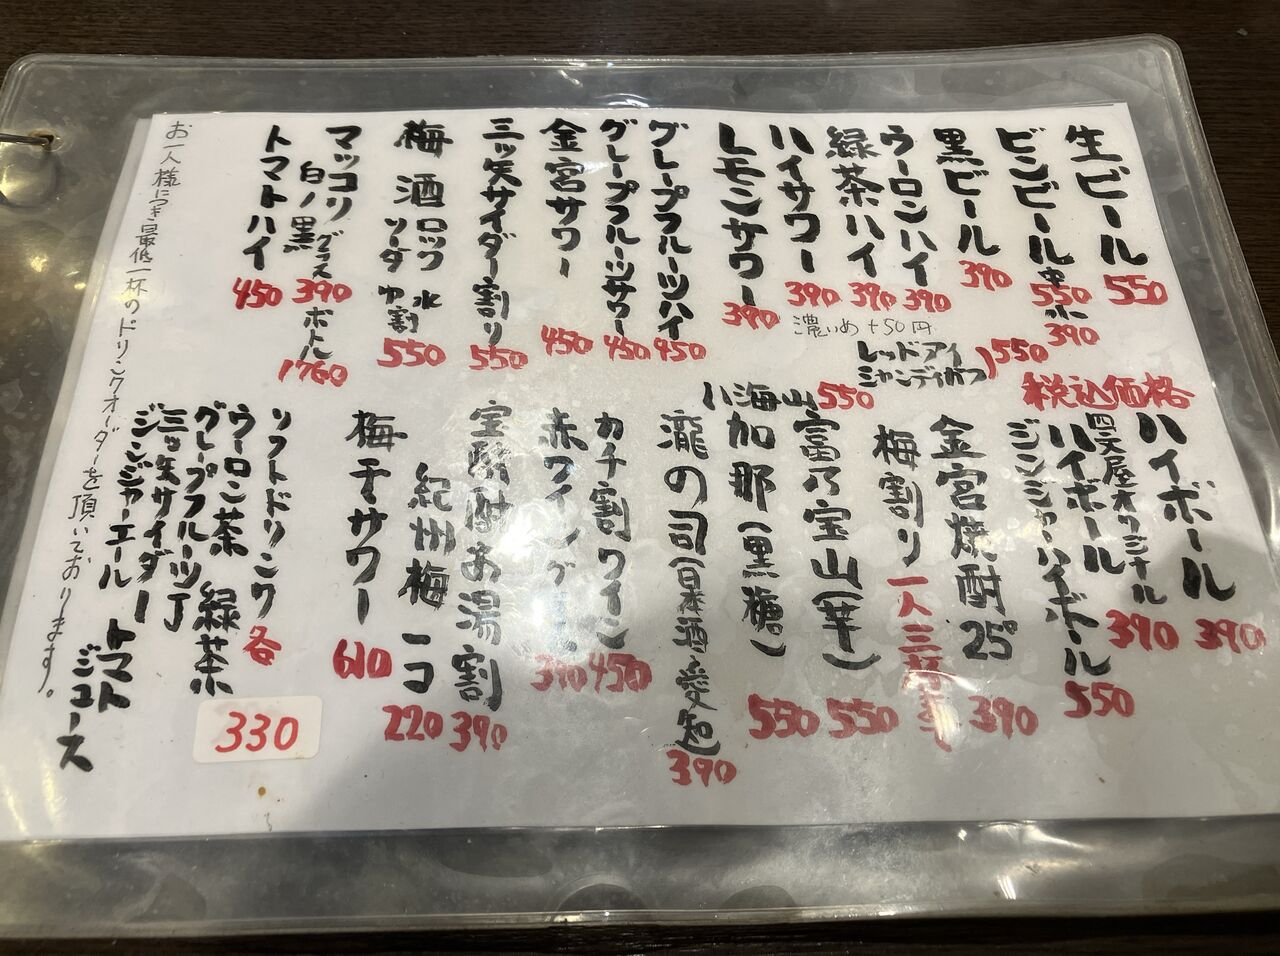 生ビール 550
ビンビール 中 550 小 390
黒ビール 390
ウーロンハイ 390
緑茶ハイ 390
ハイサワー 390
濃いめ+50円
レモンサワー 390
グレープフルーツハイ 450
グレープフルーツサワー 450
金宮サワー 450
三ッ矢サイダー割り 550
梅酒 ロック 水 ソーダ 割 550
マッコリ 白 黒 グラス 390 ボトル 1760
トマトハイ 450
お一人様につき最低一杯のドリンクオーダーを頂いております。
レッドアイ
シャンディガフ 550
税込価格
ハイボール 390
四文屋オリジナル
ハイボール 390
ジンジャーハイボール 550
金宮焼酎25° 390
梅割り 一人三杯
富乃宝山(芋) 550
八海山 550
加那(黒糖) 550
瀧の司(日本酒 愛知) 390
カチ割ワイン 450
赤ワイン 390
宝焼酎お湯割 390
紀州梅 一コ 220
梅干サワー 610
ソフトドリンク 各 330
ウーロン茶 緑茶
グレープフルーツJ
三ッ矢サイダー
ジンジャーエール
トマトジュース